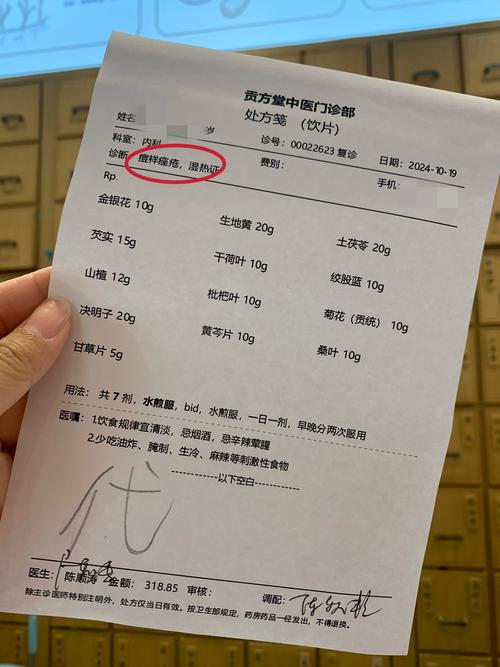 贡方堂中医门诊部
处方笺 （饮片）
姓名 岁 诊号：00022623 复诊 日期：2024-10-19
科室：内科 费别： 手机：
诊断：痘样痤疮，湿热证
Rp.
金银花 10g 生地黄 20g 土茯苓 20g
芡实 15g 干荷叶 10g 绞股蓝 10g
山楂 12g 枇杷叶 10g 菊花（贡统） 10g
决明子 20g 黄芩片 10g 桑叶 10g
甘草片 5g
用法： 共 7 剂，水煎服，bid，水煎服，一日一剂，早晚分两次服用
医嘱：1.饮食规律宜清淡，忌烟酒，忌辛辣荤腥
2.少吃油炸、腌制、生冷、麻辣等刺激性食物
------------以下空白------------
代
医生：陈顺涛 金额：318.85 审核： 调配：
除主诊医师特别注明外，处方仅当日有效。按卫生部规定，药房药品一经发出，不得退换。